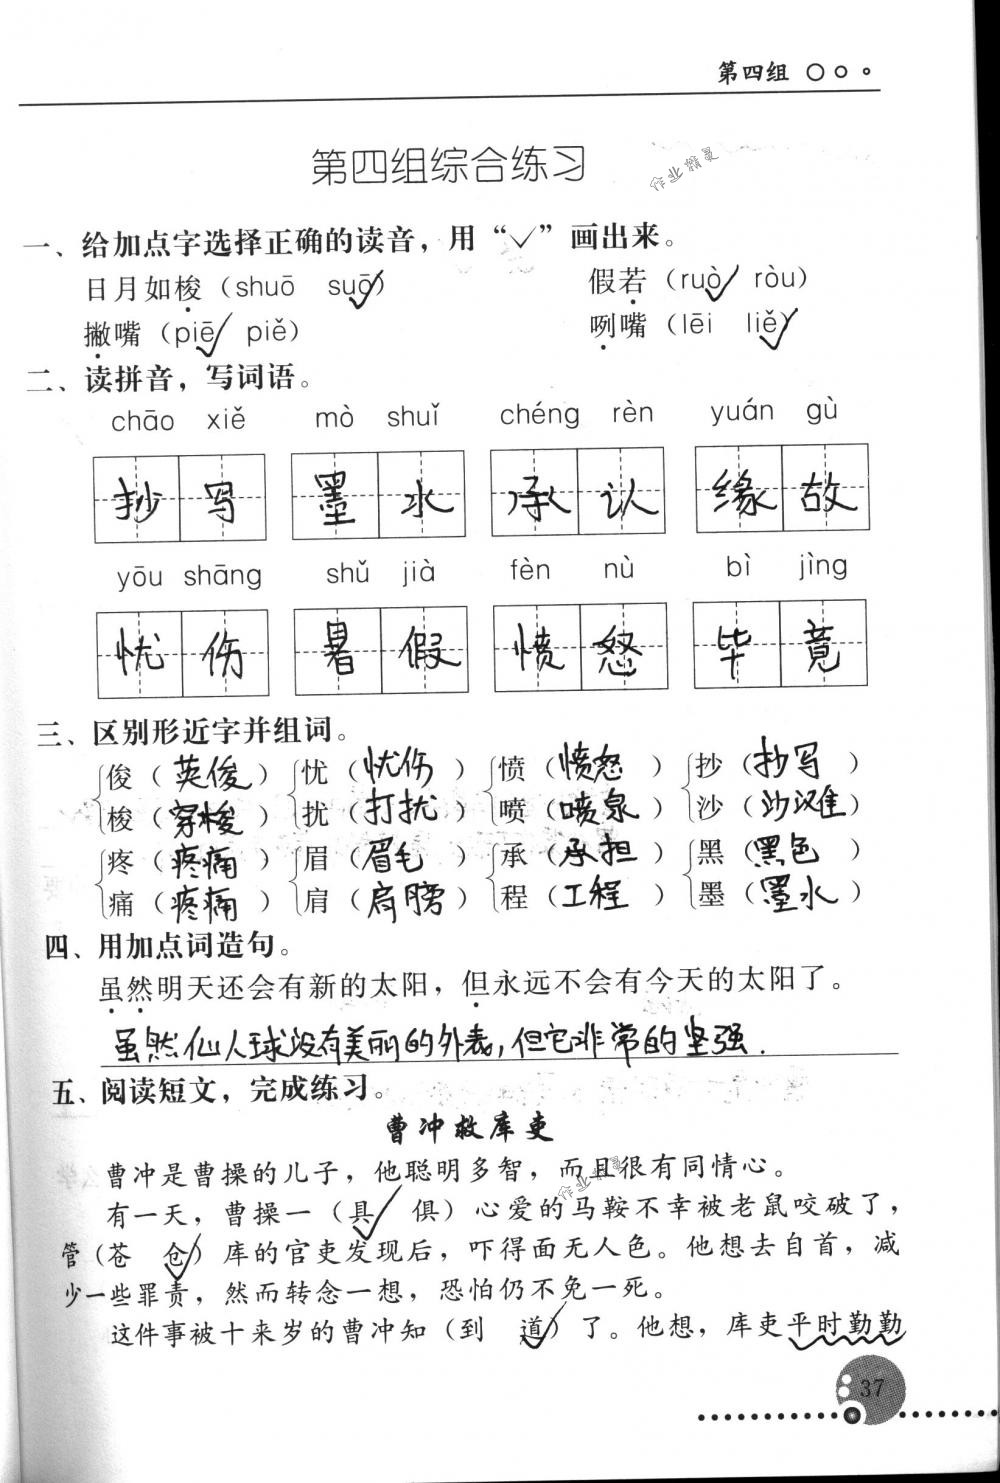 第四组
第四组综合练习
作业精灵
一、给加点字选择正确的读音，用“✓”画出来。
日月如梭（shuō suō✓） 假若（ruò✓ ròu）
撇嘴（piē✓ piě） 咧嘴（lēi liě✓）
二、读拼音，写词语。
chāo xiě mò shuǐ chéng rèn yuán gù
抄写 墨水 承认 缘故
yōu shāng shǔ jià fèn nù bì jìng
忧伤 暑假 愤怒 毕竟
三、区别形近字并组词。
俊（英俊） 忧（忧伤） 愤（愤怒） 抄（抄写）
梭（穿梭） 扰（打扰） 喷（喷泉） 沙（沙滩）
疼（疼痛） 眉（眉毛） 承（承担） 黑（黑色）
痛（疼痛） 肩（肩膀） 程（工程） 墨（墨水）
四、用加点词造句。
虽然明天还会有新的太阳，但永远不会有今天的太阳了。
虽然仙人球没有美丽的外表，但它非常的坚强.
五、阅读短文，完成练习。
曹冲救库吏
曹冲是曹操的儿子，他聪明多智，而且很有同情心。
作业精灵
有一天，曹操一（具✓ 俱）心爱的马鞍不幸被老鼠咬破了，
管（苍 仓✓）库的官吏发现后，吓得面无人色。他想去自首，减
少一些罪责，然而转念一想，恐怕仍不免一死。
这件事被十来岁的曹冲知（到 道✓）了。他想，库吏平时勤勤
37